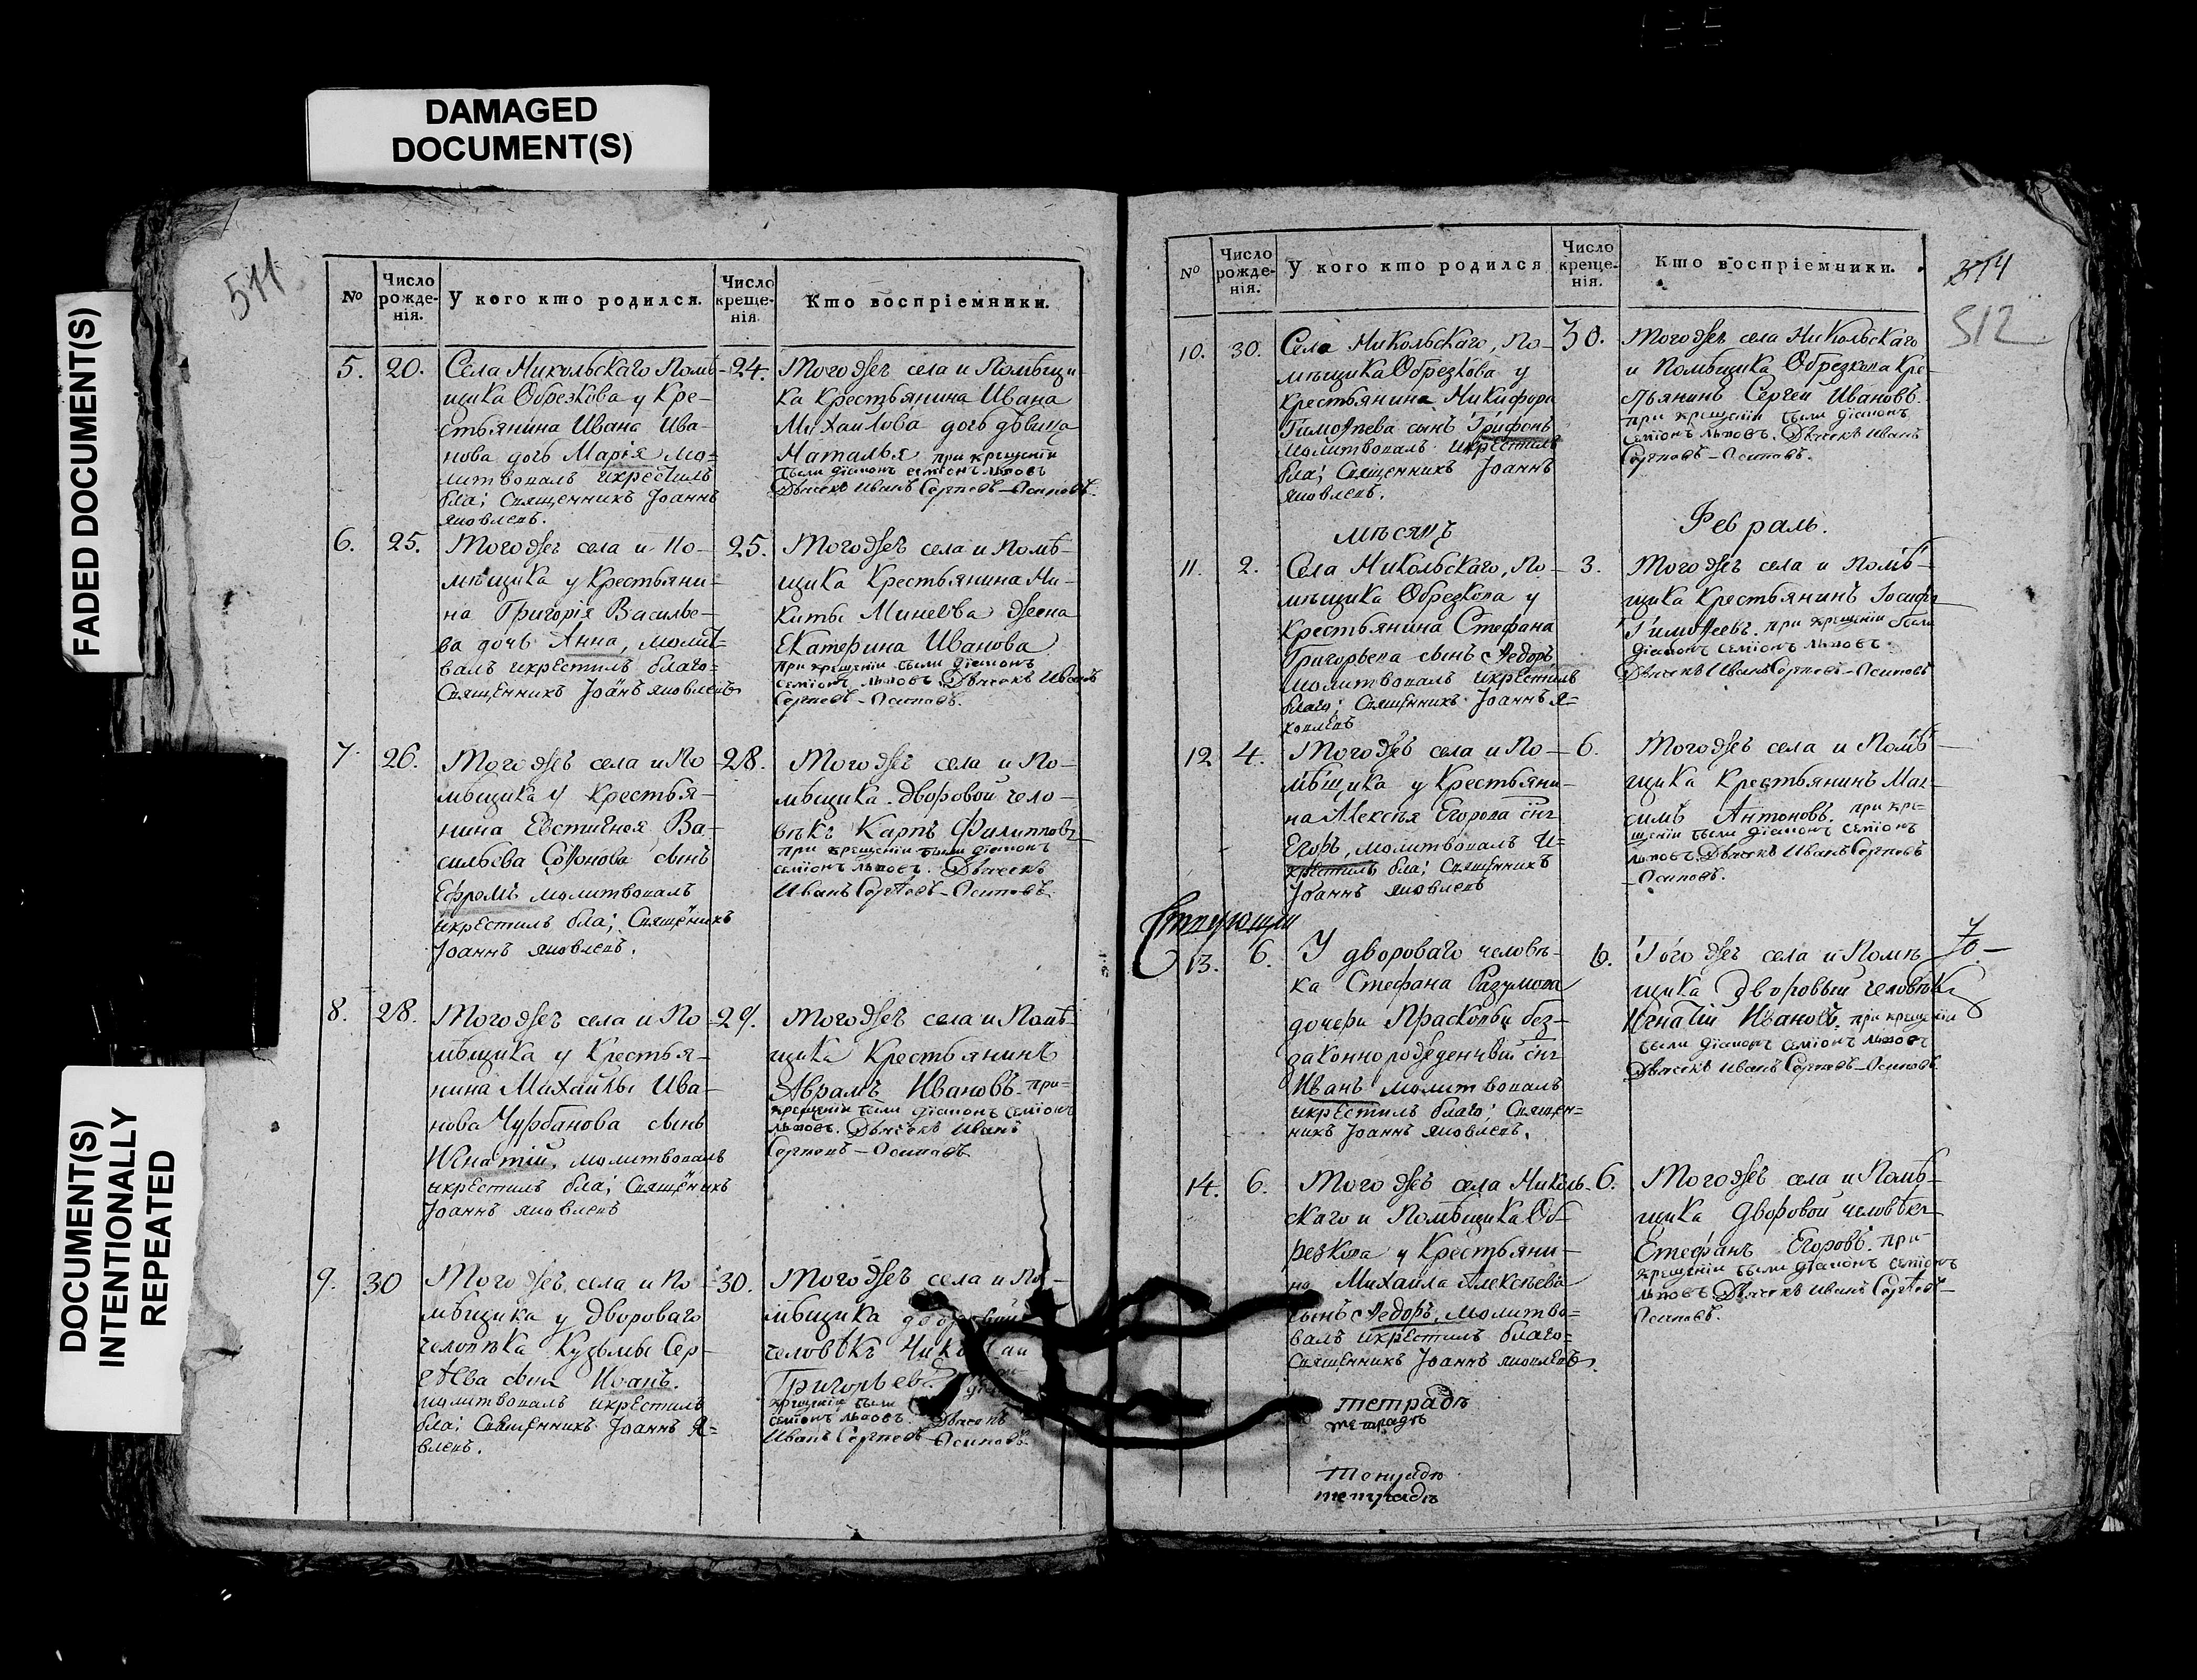 DAMAGED
DOCUMENT(S)
FADED DOCUMENT(S)
DOCUMENT(S)
INTENTIONALLY
REPEATED
511
№
Число рожденія.
У кого кто родился.
Число крещенія.
Кто воспріемники.
5. 20.
Села Никольскаго Помѣ-
щика Обрезкова у Кре-
стьянина Ивана Ива-
нова дочь Марія мо-
литвовалъ икрестилъ
бла; Священникъ Іоаннъ
Яковлевъ.
24.
Тогожъ села и Помѣщи-
ка Крестьянина Ивана
Михаилова дочь дѣвица
Наталья при крещеніи
были діаконъ семіонъ львовъ
Дьячекъ Иванъ Сергѣевъ-Осиповъ.
6. 25.
Тогожъ села и По-
мѣщика у Крестьяни-
на Григорія Василье-
ва дочь Анна, молит-
валъ икрестилъ благо-
Священникъ Іоаннъ Яковлевъ
25.
Тогожъ села и Помѣ-
щика Крестьянина Ни-
киты Минеева жена
Екатерина Иванова
при крещеніи были діаконъ
семіонъ львовъ. Дьячекъ Иванъ
Сергѣевъ-Осиповъ.
7. 26.
Тогожъ села и По
мѣщика у Крестья-
нина Евстигнея Ва-
сильева сынъ
Ефремъ молитвовалъ
икрестилъ бла; Священникъ
Іоаннъ Яковлевъ.
28.
Тогожъ села и По-
мѣщика дворовой чело-
вѣкъ Карпъ Филипповъ
при крещеніи были діаконъ
семіонъ львовъ. Дьячекъ
Иванъ Сергѣевъ-Осиповъ
8. 28.
Тогожъ села и По
мѣщика у Крестья-
нина Михайлы Ива-
нова Чурбанова сынъ
Игнатій, молитвовалъ
икрестилъ бла; Священникъ
Іоаннъ Яковлевъ
29.
Тогожъ села и Помѣ-
щика Крестьянинъ
Аврамъ Ивановъ. при-
крещеніи были діаконъ семіонъ
львовъ. Дьячекъ Иванъ
Сергѣевъ-Осиповъ
9. 30
Тогожъ села и По
мѣщика у Двороваго
человѣка Кузьмы Сер-
гѣева сынъ Иванъ.
молитвовалъ икрестилъ
бла; Священникъ Іоаннъ Я=
влевъ.
30.
Тогожъ села и По-
мѣщика
человѣкъ
Григорьевъ
крещеніи были
семіонъ львовъ. Дьячекъ
Иванъ Сергѣевъ-Осиповъ
374
512
№
Число рожденія.
У кого кто родился
Число крещенія.
Кто воспріемники.
10. 30.
Села Никольскаго, По-
мѣщика Обрезкова у
Крестьянина Никифора
Тимофѣева сынъ Трифонъ
молитвовалъ икрестилъ
бла; Священникъ Іоаннъ
Яковлевъ.
30.
Тогожъ села Никольскаго
и Помѣщика Обрезкова Кре-
стьянинъ Сергей Ивановъ.
при крещеніи были діаконъ
семіонъ львовъ. Дьячекъ Иванъ
Сергѣевъ-Осиповъ.
мѣсяцъ Февраль.
11. 2.
Села Никольскаго, По-
мѣщика Обрезкова у
Крестьянина Стефана
Григорьева сынъ Ѳедоръ
молитвовалъ икрестилъ
благо; Священникъ Іоаннъ Я=
ковлевъ
3.
Тогожъ села и Помѣ-
щика Крестьянинъ Іосифъ
Тимофеевъ. при крещеніи были
діаконъ семіонъ львовъ.
Дьячекъ Иванъ Сергѣевъ-Осиповъ
12 4.
Тогожъ села и По-
мѣщика у Крестьяни-
на Алексѣя Егорова снъ
Егоръ, молитвовалъ и-
крестилъ бла; Священникъ
Іоаннъ Яковлевъ
6.
Тогожъ села и Помѣ-
щика Крестьянинъ Мак-
симъ Антоновъ. при кре-
щеніи были діаконъ семіонъ
львовъ. Дьячекъ Иванъ Сергѣевъ
-Осиповъ.
13. 6.
У двороваго человѣ-
ка Стефана Разумова
дочери Прасковьи без-
законнорожденный снъ
Иванъ молитвовалъ
икрестилъ благо; Священ=
никъ Іоаннъ Яковлевъ.
6.
Тогожъ села и Помѣ
щика Дворовый человѣкъ
Игнатій Ивановъ. при крещеніи
были діаконъ семіонъ львовъ
Дьячекъ Иванъ Сергѣевъ-Осиповъ
14. 6.
Тогожъ села Николь-
скаго и Помѣщика Об-
резкова у Крестьяни-
на Михаила Алексѣева
сынъ Ѳедоръ, молитво=
валъ икрестилъ благо=
Священникъ Іоаннъ Яковлевъ.
6.
Тогожъ села и Помѣ-
щика дворовой человѣкъ
Стефанъ Егоровъ. при-
крещеніи были діаконъ семіонъ
львовъ. Дьячекъ Иванъ Сергѣевъ-
Осиповъ.
тетрадь
тетрадь
тетрадь